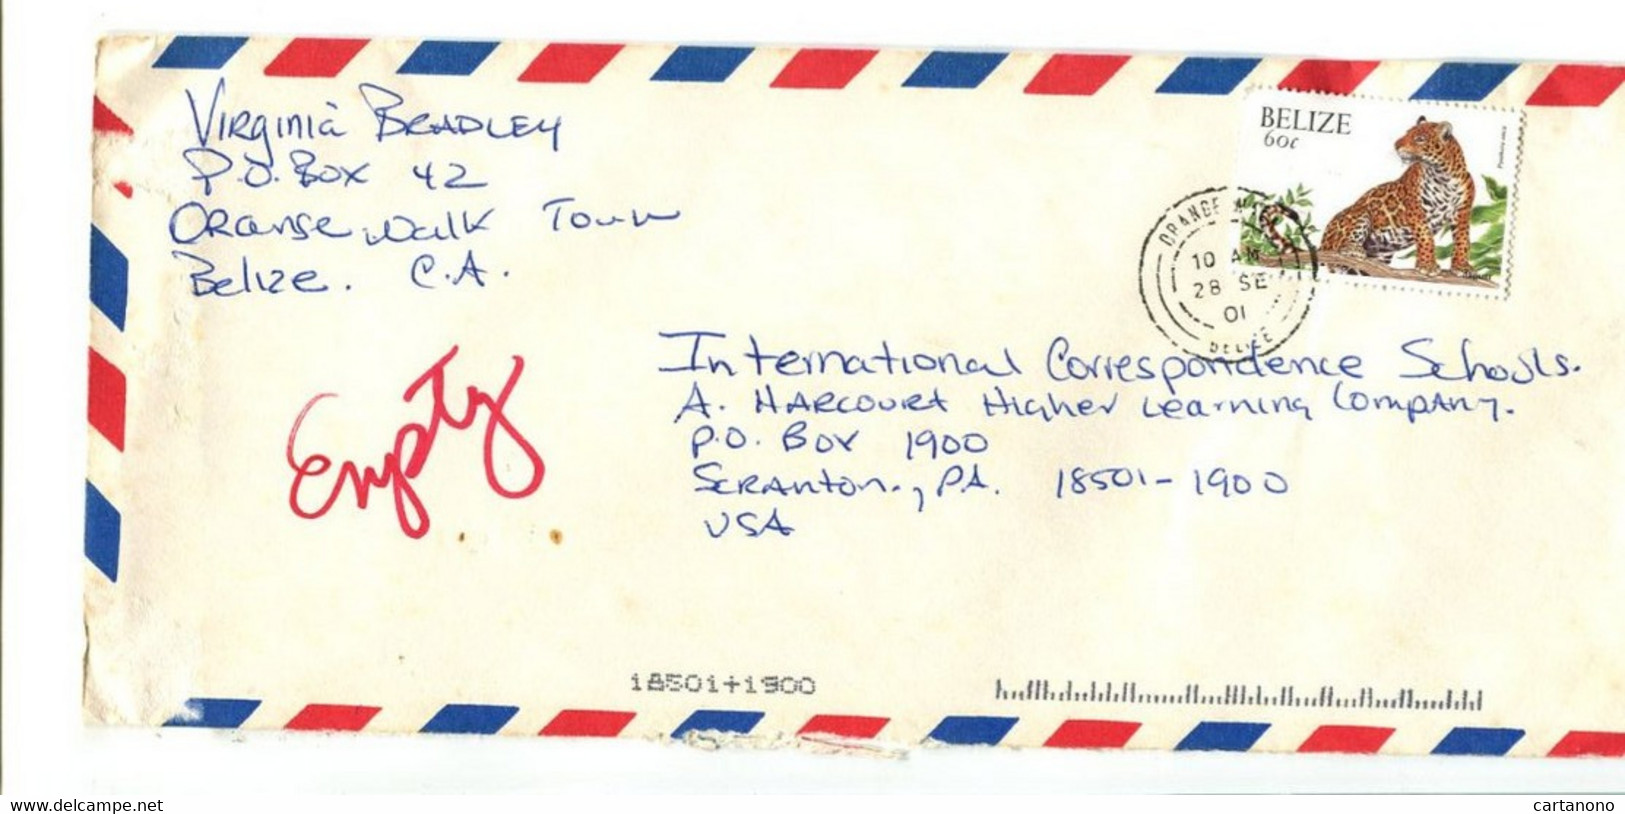 Virginia Bradley
P.O. Box 42
Orange Walk Town
Belize. C.A.
BELIZE
60c
ORANGE WALK
10 AM
28 SE
01
BELIZE
Empty
International Correspondence Schools.
A. Harcourt Higher Learning Company.
P.O. Box 1900
Scranton., PA. 18501-1900
USA
18501+1900
www.delcampe.net
cartanono